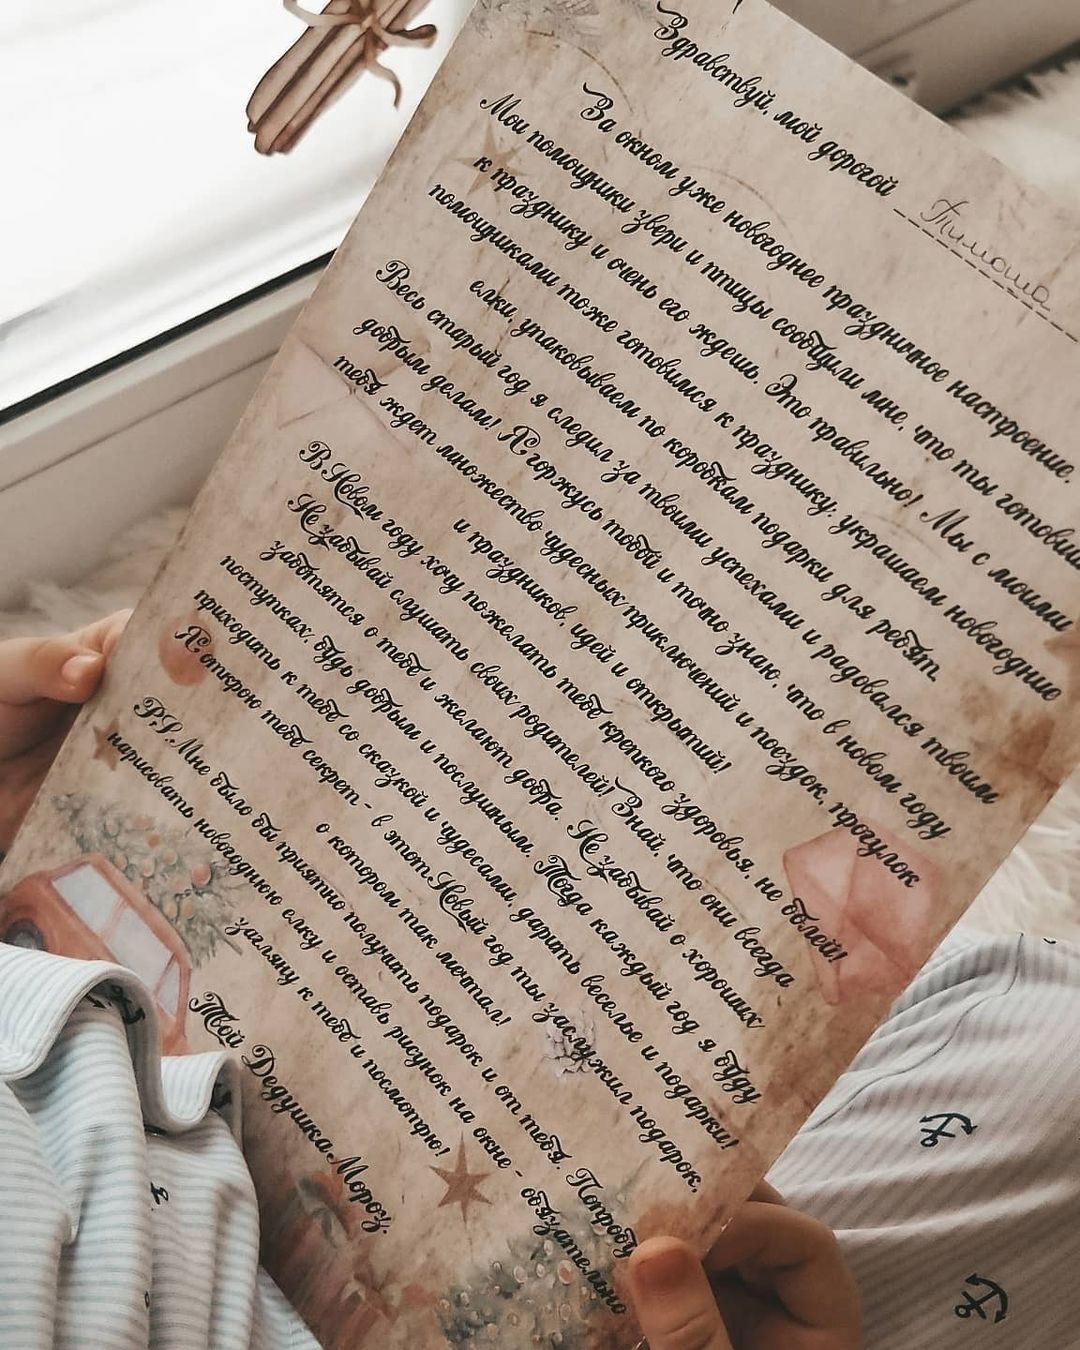 Здравствуй, мой дорогой Тимоша
За окном уже новогоднее праздничное настроение.
Мои помощники звери и птицы сообщили мне, что ты готовишься
к празднику и очень его ждешь. Это правильно! Мы с моими
помощниками тоже готовимся к празднику: украшаем новогодние
елки, упаковываем по коробкам подарки для ребят.
Весь старый год я следил за твоими успехами и радовался твоим
добрым делам! Я горжусь тобой и точно знаю, что в новом году
тебя ждет множество чудесных приключений и поездок, прогулок
и праздников, идей и открытий!
В Новом году хочу пожелать тебе крепкого здоровья, не болей!
Не забывай слушать своих родителей! Знай, что они всегда
заботятся о тебе и желают добра. Не забывай о хороших
поступках, будь добрым и послушным. Тогда каждый год я буду
приходить к тебе со сказкой и чудесами, дарить веселье и подарки!
Я открою тебе секрет - в этот Новый год ты заслужил подарок,
о котором так мечтал!
P.S. Мне было бы приятно получить подарок и от тебя. Попробуй
нарисовать новогоднюю елку и оставь рисунок на окне - обязательно
загляну к тебе и посмотрю!
Твой Дедушка Мороз.